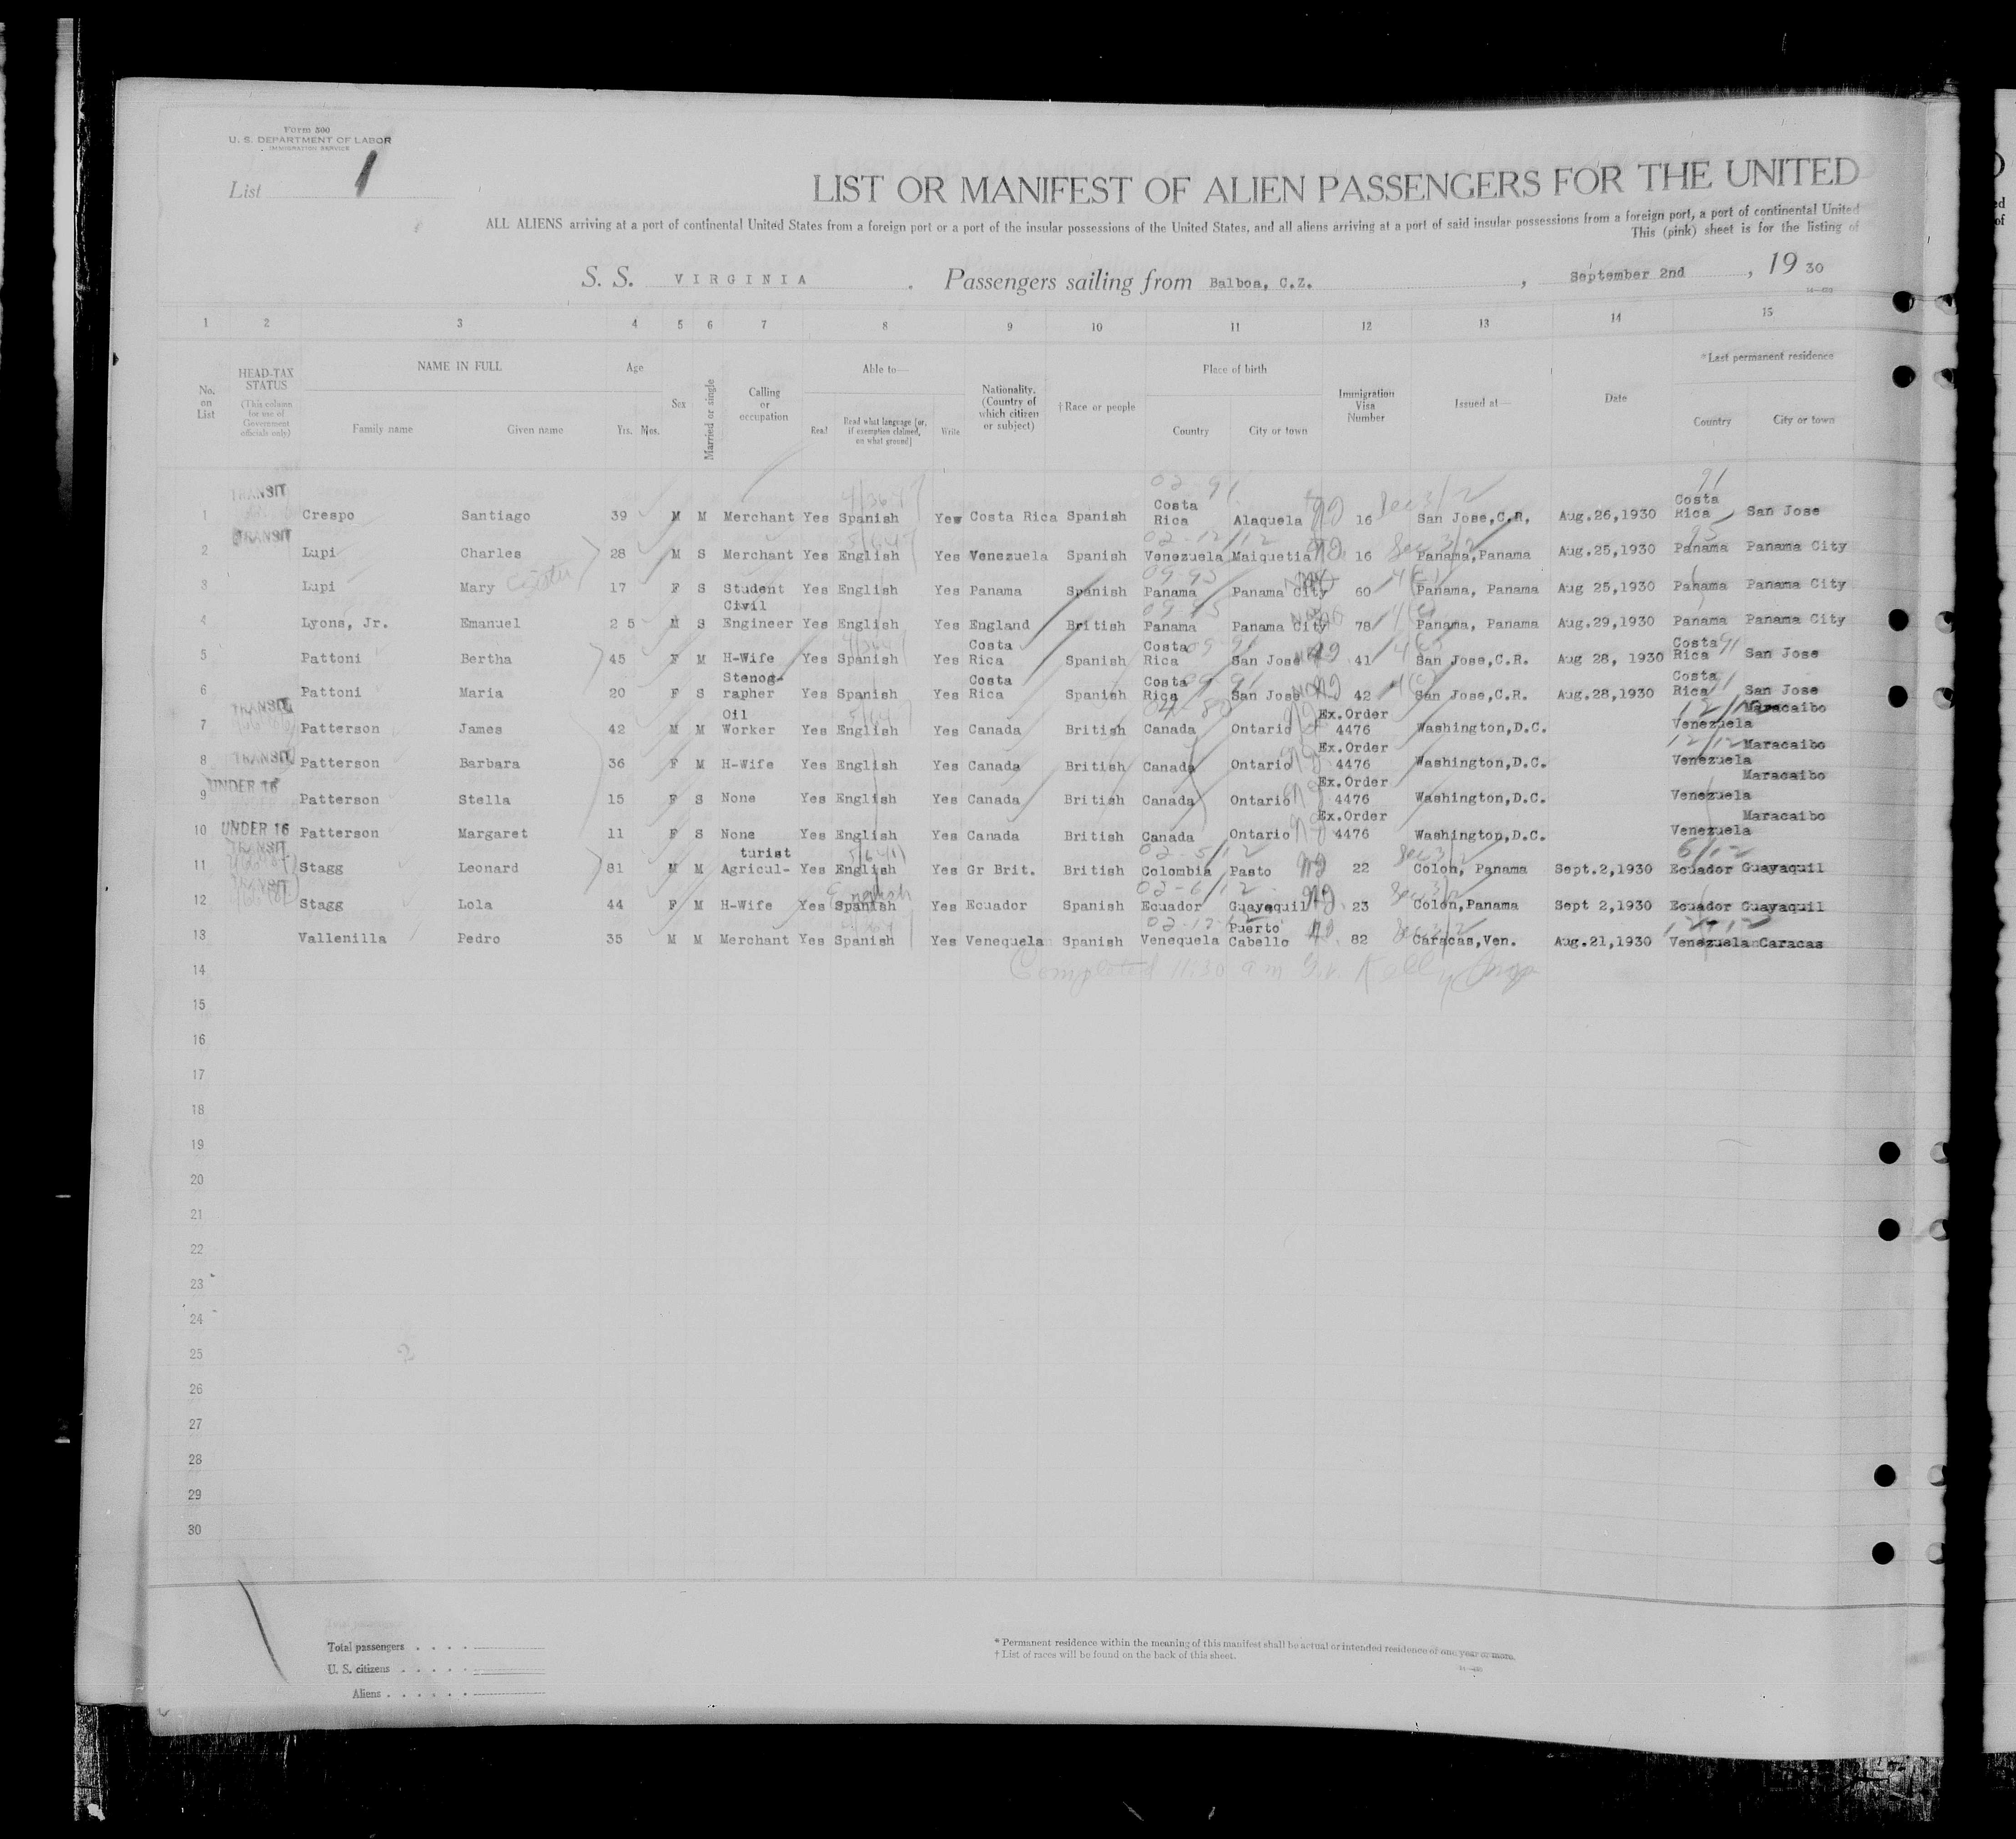 Form 500
U. S. DEPARTMENT OF LABOR
IMMIGRATION SERVICE
List 1
LIST OR MANIFEST OF ALIEN PASSENGERS FOR THE UNITED
ALL ALIENS arriving at a port of continental United States from a foreign port or a port of the insular possessions of the United States, and all aliens arriving at a port of said insular possessions from a foreign port, a port of continental United
This (pink) sheet is for the listing of
S. S. VIRGINIA . Passengers sailing from Balboa, C.Z. , September 2nd , 19 30
1 2 3 4 5 6 7 8 9 10 11 12 13 14 15
No. on List
HEAD-TAX STATUS
(This column for use of Government officials only)
NAME IN FULL
Family name Given name
Age
Yrs. Mos.
Sex
Married or single
Calling or occupation
Able to—
Read Read what language [or, if exemption claimed, on what ground] Write
Nationality. (Country of which citizen or subject)
† Race or people
Place of birth
Country City or town
Immigration Visa Number
Issued at—
Date
* Last permanent residence
Country City or town
1 TRANSIT Crespo Santiago 39 M M Merchant Yes Spanish Yew Costa Rica Spanish Costa Rica Alaquela 16 San Jose,C.R, Aug.26,1930 Costa Rica San Jose
2 TRANSIT Lupi Charles 28 M S Merchant Yes English Yes Venezuela Spanish Venezuela Maiquetia 16 Panama,Panama Aug.25,1930 Panama Panama City
3 Lupi Mary 17 F S Student Yes English Yes Panama Spanish Panama Panama City 60 Panama, Panama Aug 25,1930 Panama Panama City
4 Lyons, Jr. Emanuel 2 5 M S Civil Engineer Yes English Yes England British Panama Panama City 78 Panama, Panama Aug.29,1930 Panama Panama City
5 Pattoni Bertha 45 F M H-Wife Yes Spanish Yes Costa Rica Spanish Costa Rica San Jose 41 San Jose,C.R. Aug 28, 1930 Costa Rica San Jose
6 Pattoni Maria 20 F S Stenog-rapher Yes Spanish Yes Costa Rica Spanish Costa Rica San Jose 42 San Jose,C.R. Aug.28,1930 Costa Rica San Jose
7 TRANSIT Patterson James 42 M M Oil Worker Yes English Yes Canada British Canada Ontario Ex.Order 4476 Washington,D.C. Venezuela Maracaibo
8 TRANSIT Patterson Barbara 36 F M H-Wife Yes English Yes Canada British Canada Ontario Ex.Order 4476 Washington,D.C. Venezuela Maracaibo
9 UNDER 16 Patterson Stella 15 F S None Yes English Yes Canada British Canada Ontario Ex.Order 4476 Washington,D.C. Venezuela Maracaibo
10 UNDER 16 Patterson Margaret 11 F S None Yes English Yes Canada British Canada Ontario Ex.Order 4476 Washington,D.C. Venezuela Maracaibo
11 TRANSIT Stagg Leonard 81 M M Agricul-turist Yes English Yes Gr Brit. British Colombia Pasto 22 Colon, Panama Sept.2,1930 Ecuador Guayaquil
12 TRANSIT Stagg Lola 44 F M H-Wife Yes Spanish English Yes Ecuador Spanish Ecuador Guayaquil 23 Colon,Panama Sept 2,1930 Ecuador Guayaquil
13 Vallenilla Pedro 35 M M Merchant Yes Spanish Yes Venequela Spanish Venequela Puerto Cabello 82 Caracas,Ven. Aug.21,1930 Venezuela Caracas
14 Completed 11:30 a m
15
16
17
18
19
20
21
22
23
24
25
26
27
28
29
30
Total passengers
U. S. citizens
Aliens
* Permanent residence within the meaning of this manifest shall be actual or intended residence of one year or more.
† List of races will be found on the back of this sheet.